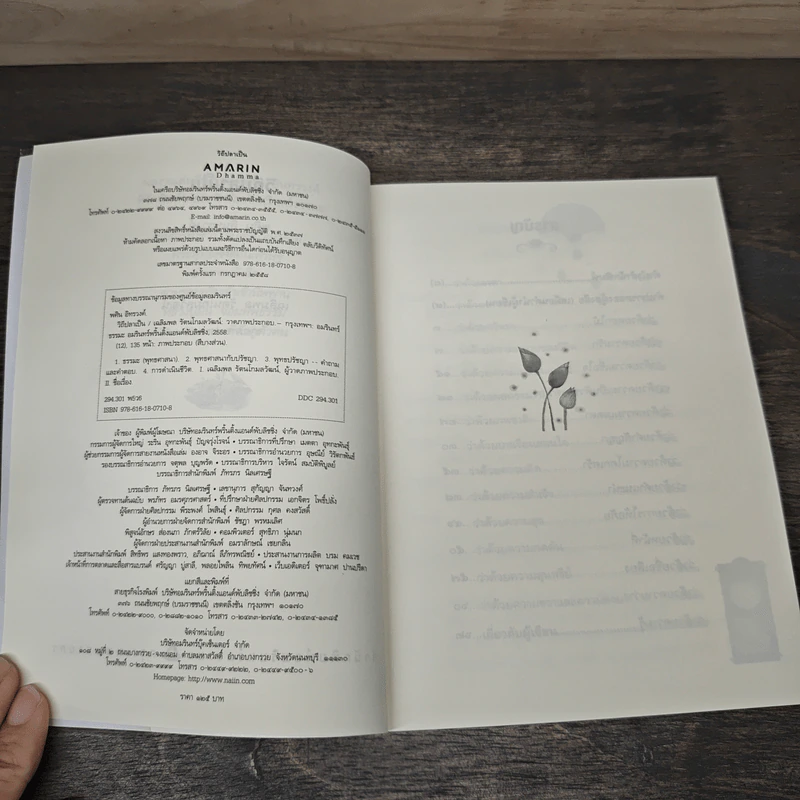 วิถีปลาเป็น
AMARIN
Dhamma
ในเครือบริษัทอมรินทร์พริ้นติ้งแอนด์พับลิชชิ่ง จำกัด (มหาชน)
๓๗๘ ถนนชัยพฤกษ์ (บรมราชชนนี) เขตตลิ่งชัน กรุงเทพฯ ๑๐๑๗๐
E-mail: info@amarin.co.th
สงวนลิขสิทธิ์หนังสือเล่มนี้ตามพระราชบัญญัติ พ.ศ.๒๕๓๗
ห้ามคัดลอกเนื้อหา ภาพประกอบ รวมทั้งดัดแปลงเป็นแถบบันทึกเสียง ตลับวีดิทัศน์
หรือเผยแพร่ด้วยรูปแบบและวิธีการอื่นใดก่อนได้รับอนุญาต
เลขมาตรฐานสากลประจำหนังสือ 978-616-18-0710-8
พิมพ์ครั้งแรก กรกฎาคม ๒๕๕๘
ข้อมูลทางบรรณานุกรมของศูนย์ข้อมูลอมรินทร์
พศิน อินทรวงค์
วิถีปลาเป็น / เฉลิมพล รัตนโกมลวัฒน์, วาดภาพประกอบ.-- กรุงเทพฯ: อมรินทร์
ธรรมะ อมรินทร์พริ้นติ้งแอนด์พับลิชชิ่ง, 2558.
(12), 135 หน้า: ภาพประกอบ (สีบางส่วน).
1. ธรรมะ (พุทธศาสนา) 2. พุทธศาสนากับปรัชญา. 3. พุทธปรัชญา -- คำถาม
และคำตอบ. 4. การดำเนินชีวิต. I. เฉลิมพล รัตนโกมลวัฒน์, ผู้วาดภาพประกอบ.
II. ชื่อเรื่อง.
294.301 พ536 DDC 294.301
ISBN 978-616-18-0710-8
เจ้าของ ผู้พิมพ์ผู้โฆษณา บริษัทอมรินทร์พริ้นติ้งแอนด์พับลิชชิ่ง จำกัด (มหาชน)
กรรมการผู้จัดการใหญ่ ระริน อุทกะพันธุ์ ปัญจรุ่งโรจน์ • บรรณาธิการที่ปรึกษา เมตตา อุทกะพันธุ์
ผู้ช่วยกรรมการผู้จัดการสายงานหนังสือเล่ม องอาจ จิระอร • บรรณาธิการอำนวยการ อุษณีย์ วิรัตกพันธ์
รองบรรณาธิการอำนวยการ จตุพล บุญพรัด • บรรณาธิการบริหาร ใจรัตน์ สมบัติพิบูลย์
บรรณาธิการสำนักพิมพ์ ภัทรภร นิลเศรษฐี
บรรณาธิการ ภัทรภร นิลเศรษฐี • เลขานุการ สุกัญญา จันทวงศ์
ผู้ตรวจทานต้นฉบับ พรภัทร อมรศุภรศาสตร์ • ที่ปรึกษาฝ่ายศิลปกรรม เอกจิตร โพธิ์ปลั่ง
ผู้จัดการฝ่ายศิลปกรรม พีระพงศ์ โพสินธุ์ • ศิลปกรรม กุศล คงสวัสดิ์
ผู้อำนวยการฝ่ายจัดการสำนักพิมพ์ ชัชฎา พรหมเลิศ
พิสูจน์อักษร ส่องนภา ภักตร์วิลัย • คอมพิวเตอร์ สุทธิภา นุ่มนภา
ผู้จัดการฝ่ายประสานงานสำนักพิมพ์ อมราลักษณ์ เชยกลิ่น
ประสานงานสำนักพิมพ์ สิทธิพร แสงทองพราว, อภิญาณ์ ลีภัทรพณิชย์ • ประสานงานการผลิต บรม คมเวช
เจ้าหน้าที่การตลาดและสื่อสารแบรนด์ ศรัญญา บู่สาลี, พลอยไพลิน ทิพยทัศน์ • เว็บเอดิเตอร์ จุฑามาศ ปานปรีดา
แยกสีและพิมพ์ที่
สายธุรกิจโรงพิมพ์ บริษัทอมรินทร์พริ้นติ้งแอนด์พับลิชชิ่ง จำกัด (มหาชน)
๓๗๖ ถนนชัยพฤกษ์ (บรมราชชนนี) เขตตลิ่งชัน กรุงเทพฯ ๑๐๑๗๐
โทรศัพท์ ๐-๒๔๒๒-๙๐๐๐, ๐-๒๘๘๒-๑๐๑๐ โทรสาร ๐-๒๔๓๓-๒๗๔๒, ๐-๒๔๓๔-๑๓๘๕
จัดจำหน่ายโดย
บริษัทอมรินทร์บุ๊คเซ็นเตอร์ จำกัด
๑๐๘ หมู่ที่ ๒ ถนนบางกรวย-จงถนอม ตำบลมหาสวัสดิ์ อำเภอบางกรวย จังหวัดนนทบุรี ๑๑๑๓๐
โทรศัพท์ ๐-๒๔๒๓-๙๙๙๙ โทรสาร ๐-๒๔๔๙-๙๒๒๒, ๐-๒๔๔๙-๙๕๐๐-๖
Homepage: http://www.naiin.com
ราคา ๑๒๕ บาท